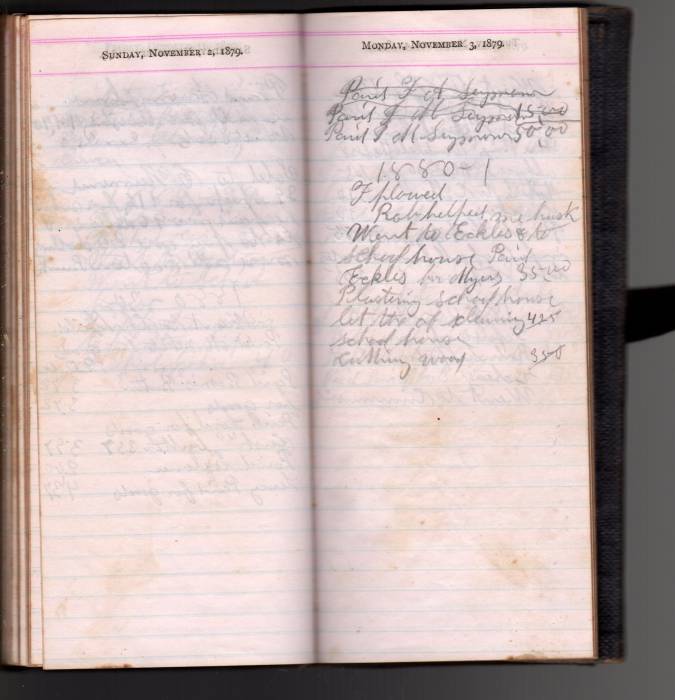 SUNDAY, NOVEMBER 2, 1879.
MONDAY, NOVEMBER 3, 1879.
Paid F M Seymour
Paid F M Seymour 15.00
Paid F M Seymour 50.00
1880-1
I plowed
Rob helped me husk
Went to Eckles & to
school house Paid
Eckles for Myers 35.00
Plastering school house
let the of cleaning 425
school house
cutting wood 350